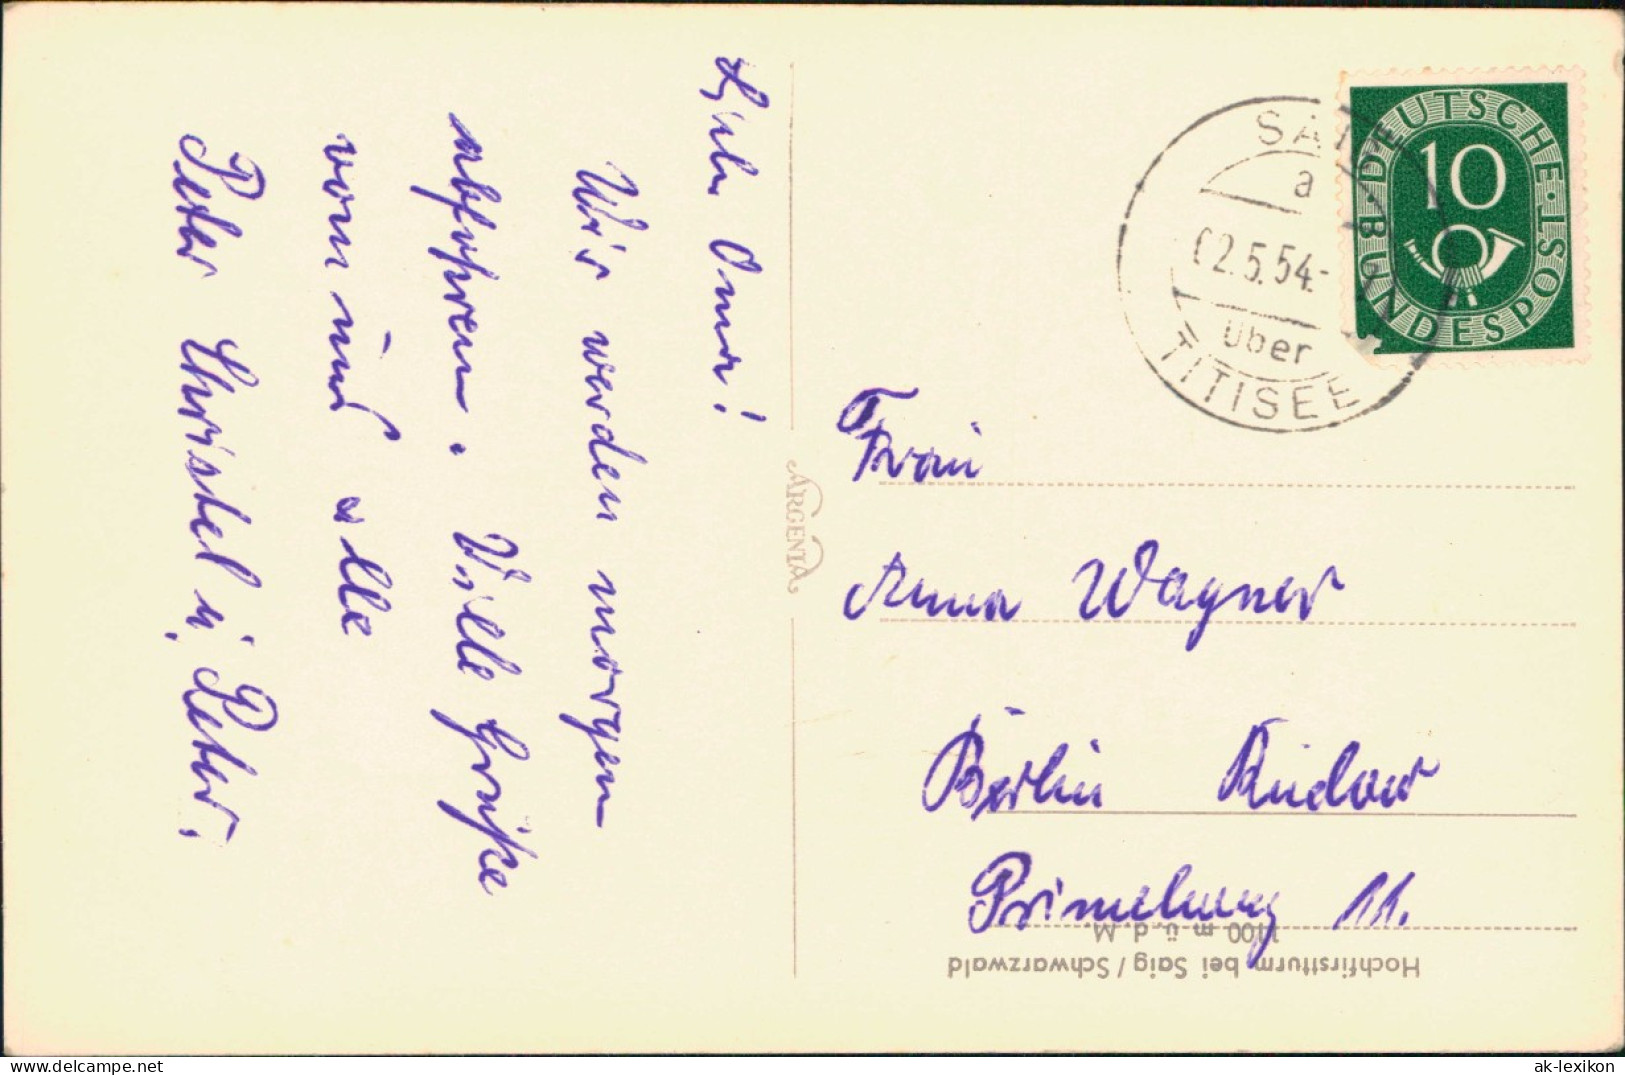 Liebe Oma!
Wir werden morgen
abfahren. Viele Grüße
von uns alle
Peter Christel u. Peter.
ARGENTA
SAIG
a
02.5.54.-
über
TITISEE
DEUTSCHE BUNDESPOST
10
Frau
Anna Wagner
Berlin Rudow
Primelweg 11.
Hochfirstturm bei Saig / Schwarzwald
1100 m ü. d. M.
delcampe.net
ak-lexikon